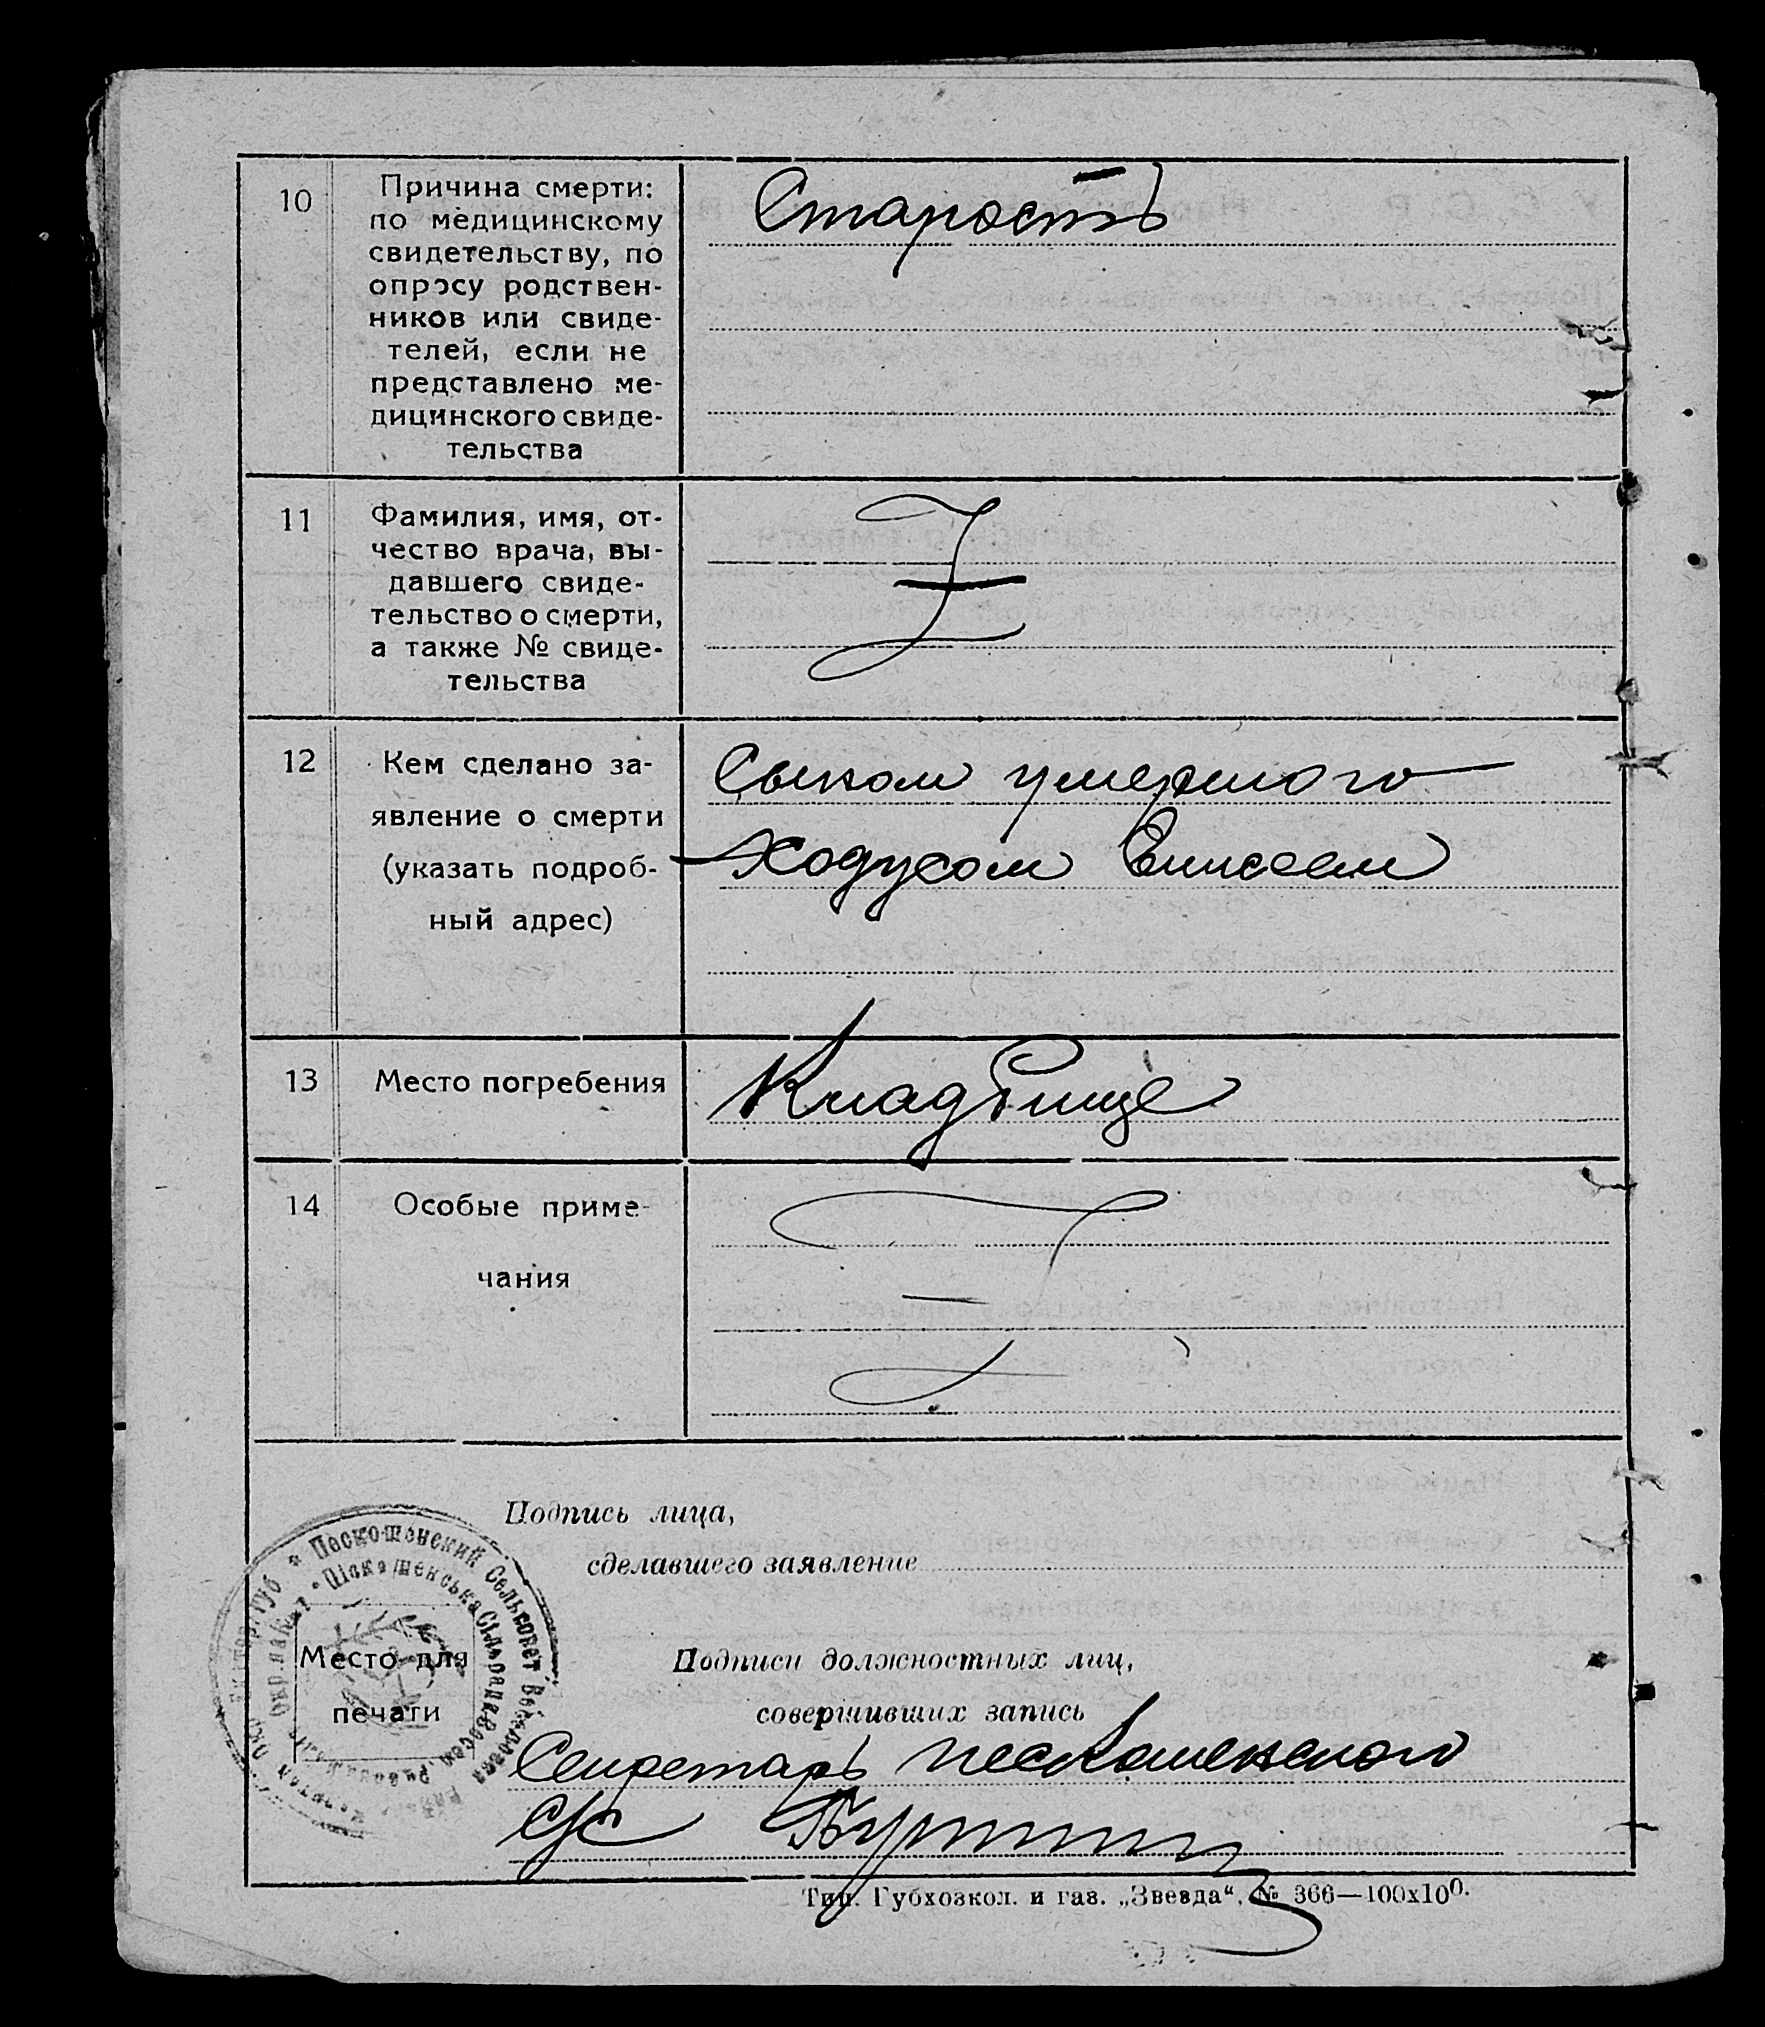 10
Причина смерти:
по медицинскому
свидетельству, по
опросу родствен-
ников или свиде-
телей, если не
представлено ме-
дицинского свиде-
тельства
Старость
11
Фамилия, имя, от-
чество врача, вы-
давшего свиде-
тельство о смерти,
а также № свиде-
тельства
12
Кем сделано за-
явление о смерти
(указать подроб-
ный адрес)
Сыном умершого
Ходусом Елисеем
13
Место погребения
Кладбище
14
Особые приме-
чания
Подпись лица,
сделавшего заявление
Место для
печати
Пескошенский Сельсовет
Подписи должностных лиц,
совершивших запись
Секретарь Пескошенского
С/С
Тип. Губхозкол. и газ. „Звезда“. № 366—100х100.